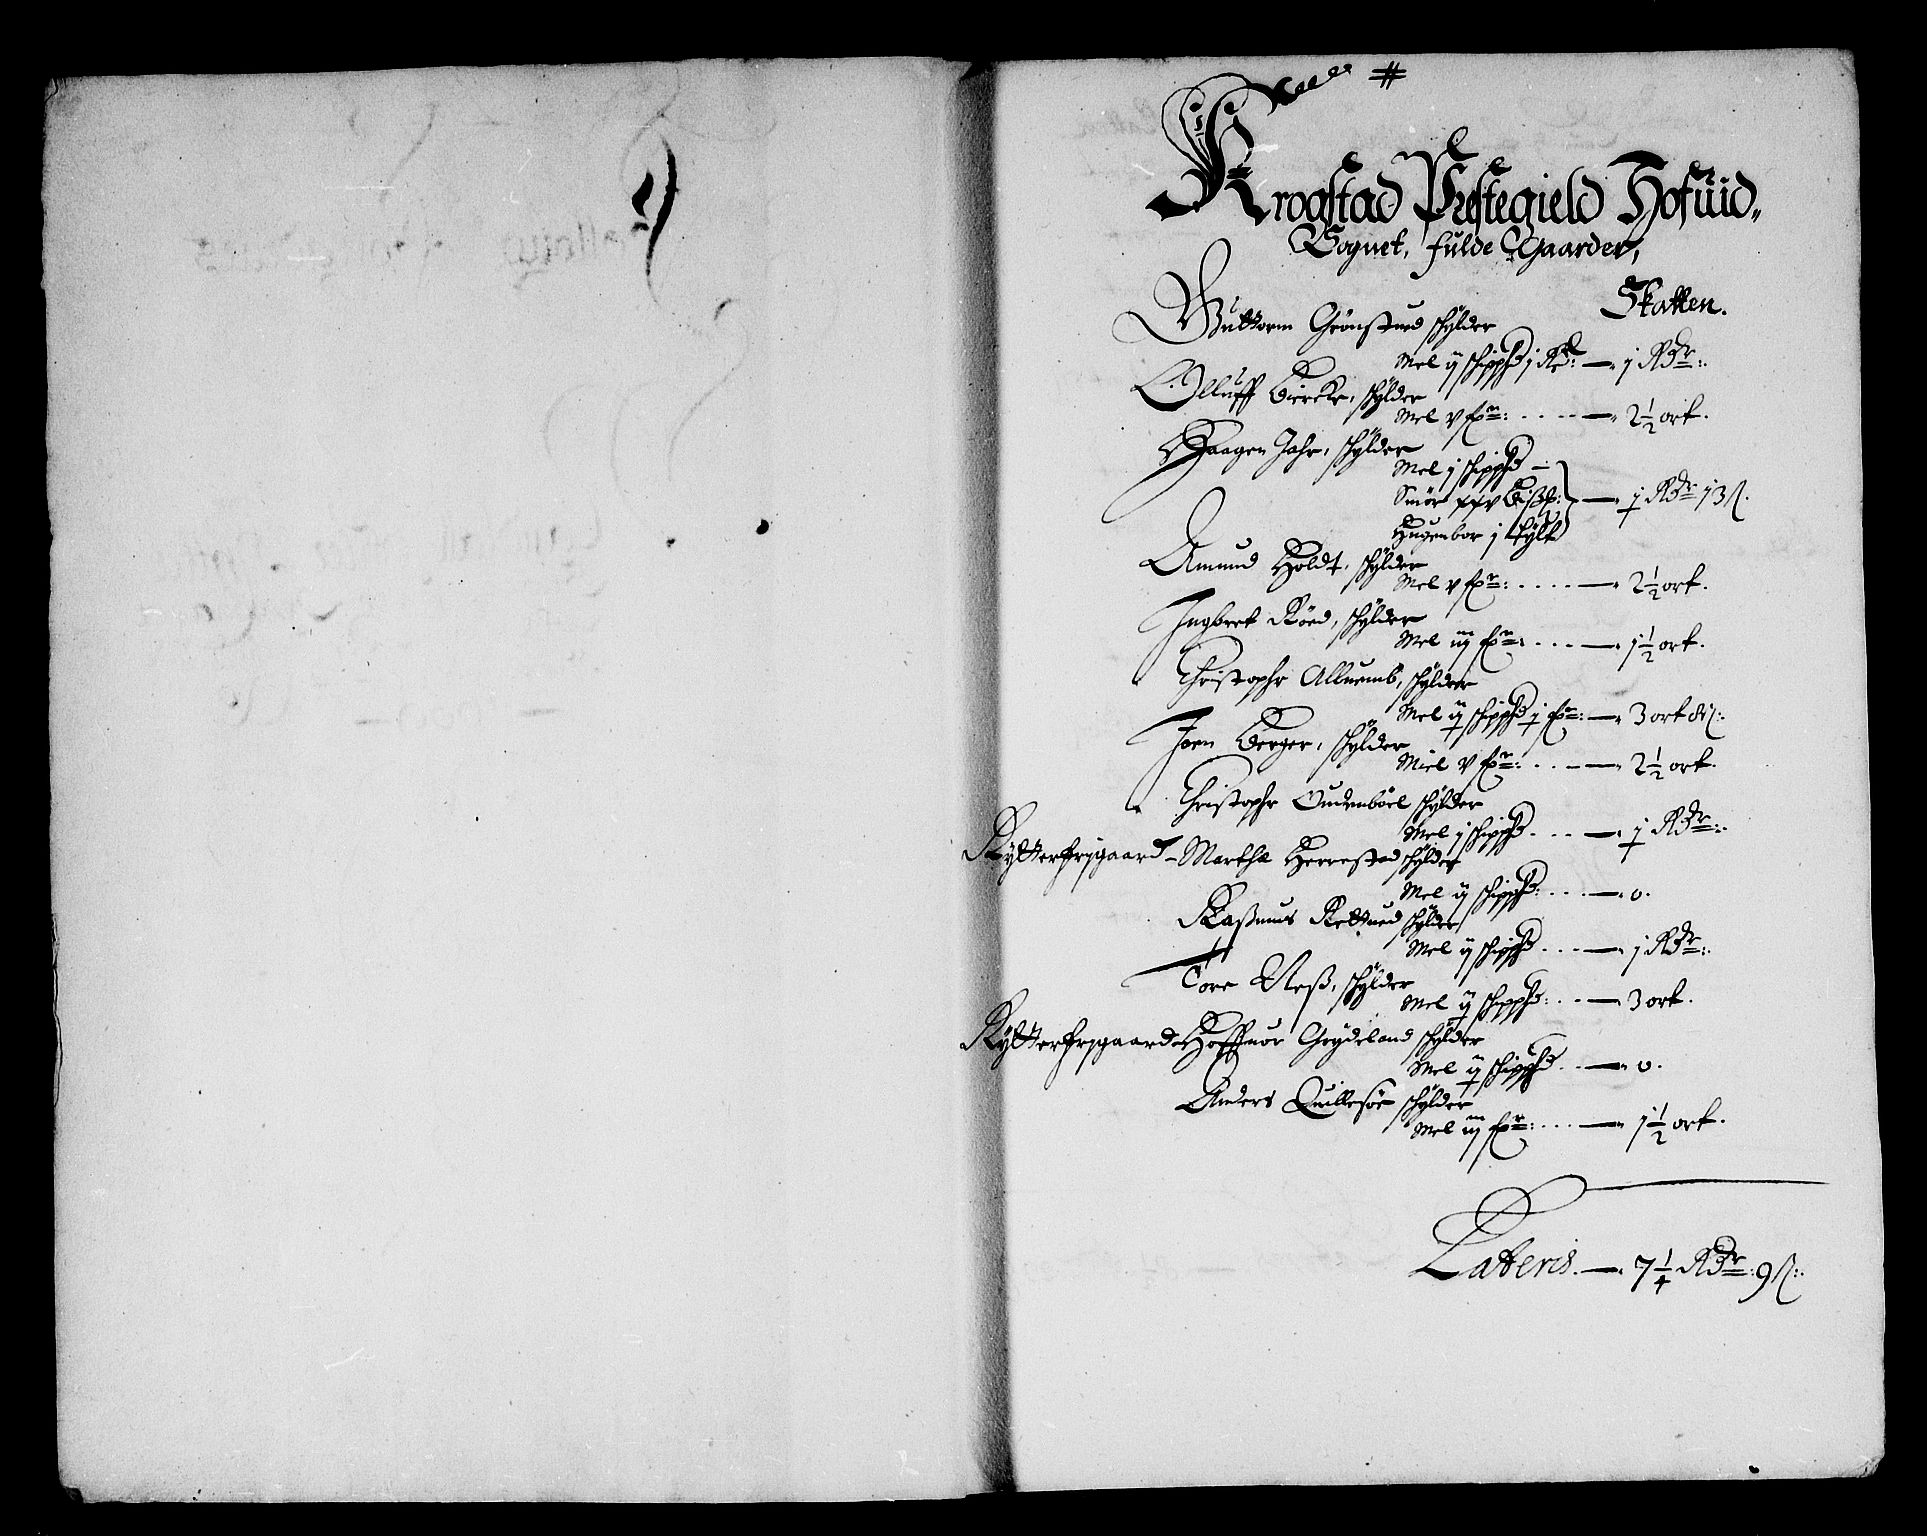 #
Krogstad Prestegield Hofüid„
Sognet, fulde Gaarder,
Skatten.
Guttorm Grönstued schÿlder
Mel ij schippd j — j Rdr:
Olluff Biercke, schÿlder
Mel v fr: — 2½ ort.
Haagen Jahr, schÿlder
Mel j schippd
Smör xxv
Hugenbor j tÿlt — j Rdr 13 s.
Amund Holdt, schÿlder
Mel v fr: — 2½ ort.
Ingbret Röed, schÿlder
Mel iij fr: — 1½ ort.
Christophr Alluemb, schÿlder
Mel ij schippd j fr: — 3 ort 8 s:
Joen Berger, schÿlder
Miel v fr: — 2½ ort.
Christophr Oudenböel schÿlder
Mel j schippd — j Rdr:
Rÿtterfrjgaard - Marthe Herrestad schÿlder
Mel ij schippd: — 0.
Rasmus Rettued schÿlder
Mel ij schippd — j Rdr:
Tore Neß, schÿlder
Mel ij schippd: — 3 ort.
Rÿtterfrjgaard Hoffuor Grÿdeland schÿlder
Mel ij schippd — 0.
Anders Quillesöe schÿlder
Mel iij fr: — 1½ ort.
Latteris. — 7¼ Rdr: 9 s: